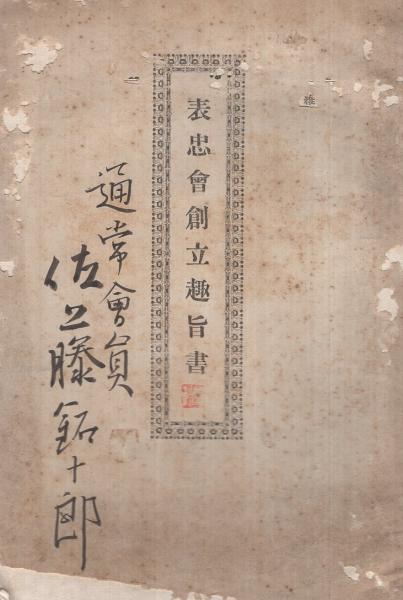 雑
表忠會創立趣旨書
通常會員
佐藤鉐十郎